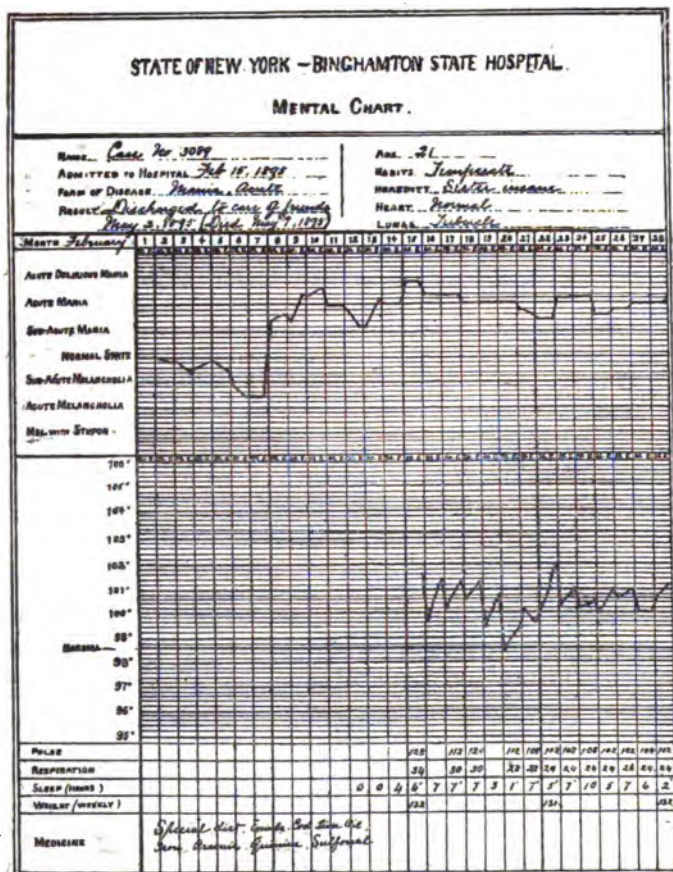 STATE OF NEW YORK – BINGHAMTON STATE HOSPITAL.
MENTAL CHART.
NAME Case No 3089
ADMITTED TO HOSPITAL Feb 15, 1898
FORM OF DISEASE Mania, Acute
RESULT Discharged to care of friends
May 2, (Died May 7,
AGE 21
HABITS Temperate
HEREDITY Sister insane
HEART Normal
LUNGS
MONTH February 1 2 3 4 5 6 7 8 9 10 11 12 13 14 15 16 17 18 19 20 21 22 23 24 25 26 27 28
ACUTE DELIRIOUS MANIA
ACUTE MANIA
SUB-ACUTE MANIA
NORMAL STATE
SUB-ACUTE MELANCHOLIA
ACUTE MELANCHOLIA
MEL. WITH STUPOR
106°
105°
104°
103°
102°
101°
100°
99°
NORMAL
98°
97°
96°
95°
PULSE 112 112 108 102 102
RESPIRATION 30 30 24 24 24 24 26 24 24
SLEEP (HOURS) 0 0 4 4 7 7 7 3 1 7 5 7 10 5 7 6 2
WEIGHT (WEEKLY)
MEDICINE
Special diet. Cod Liver Oil.
Iron, Arsenic, Quinine, Sulfonal